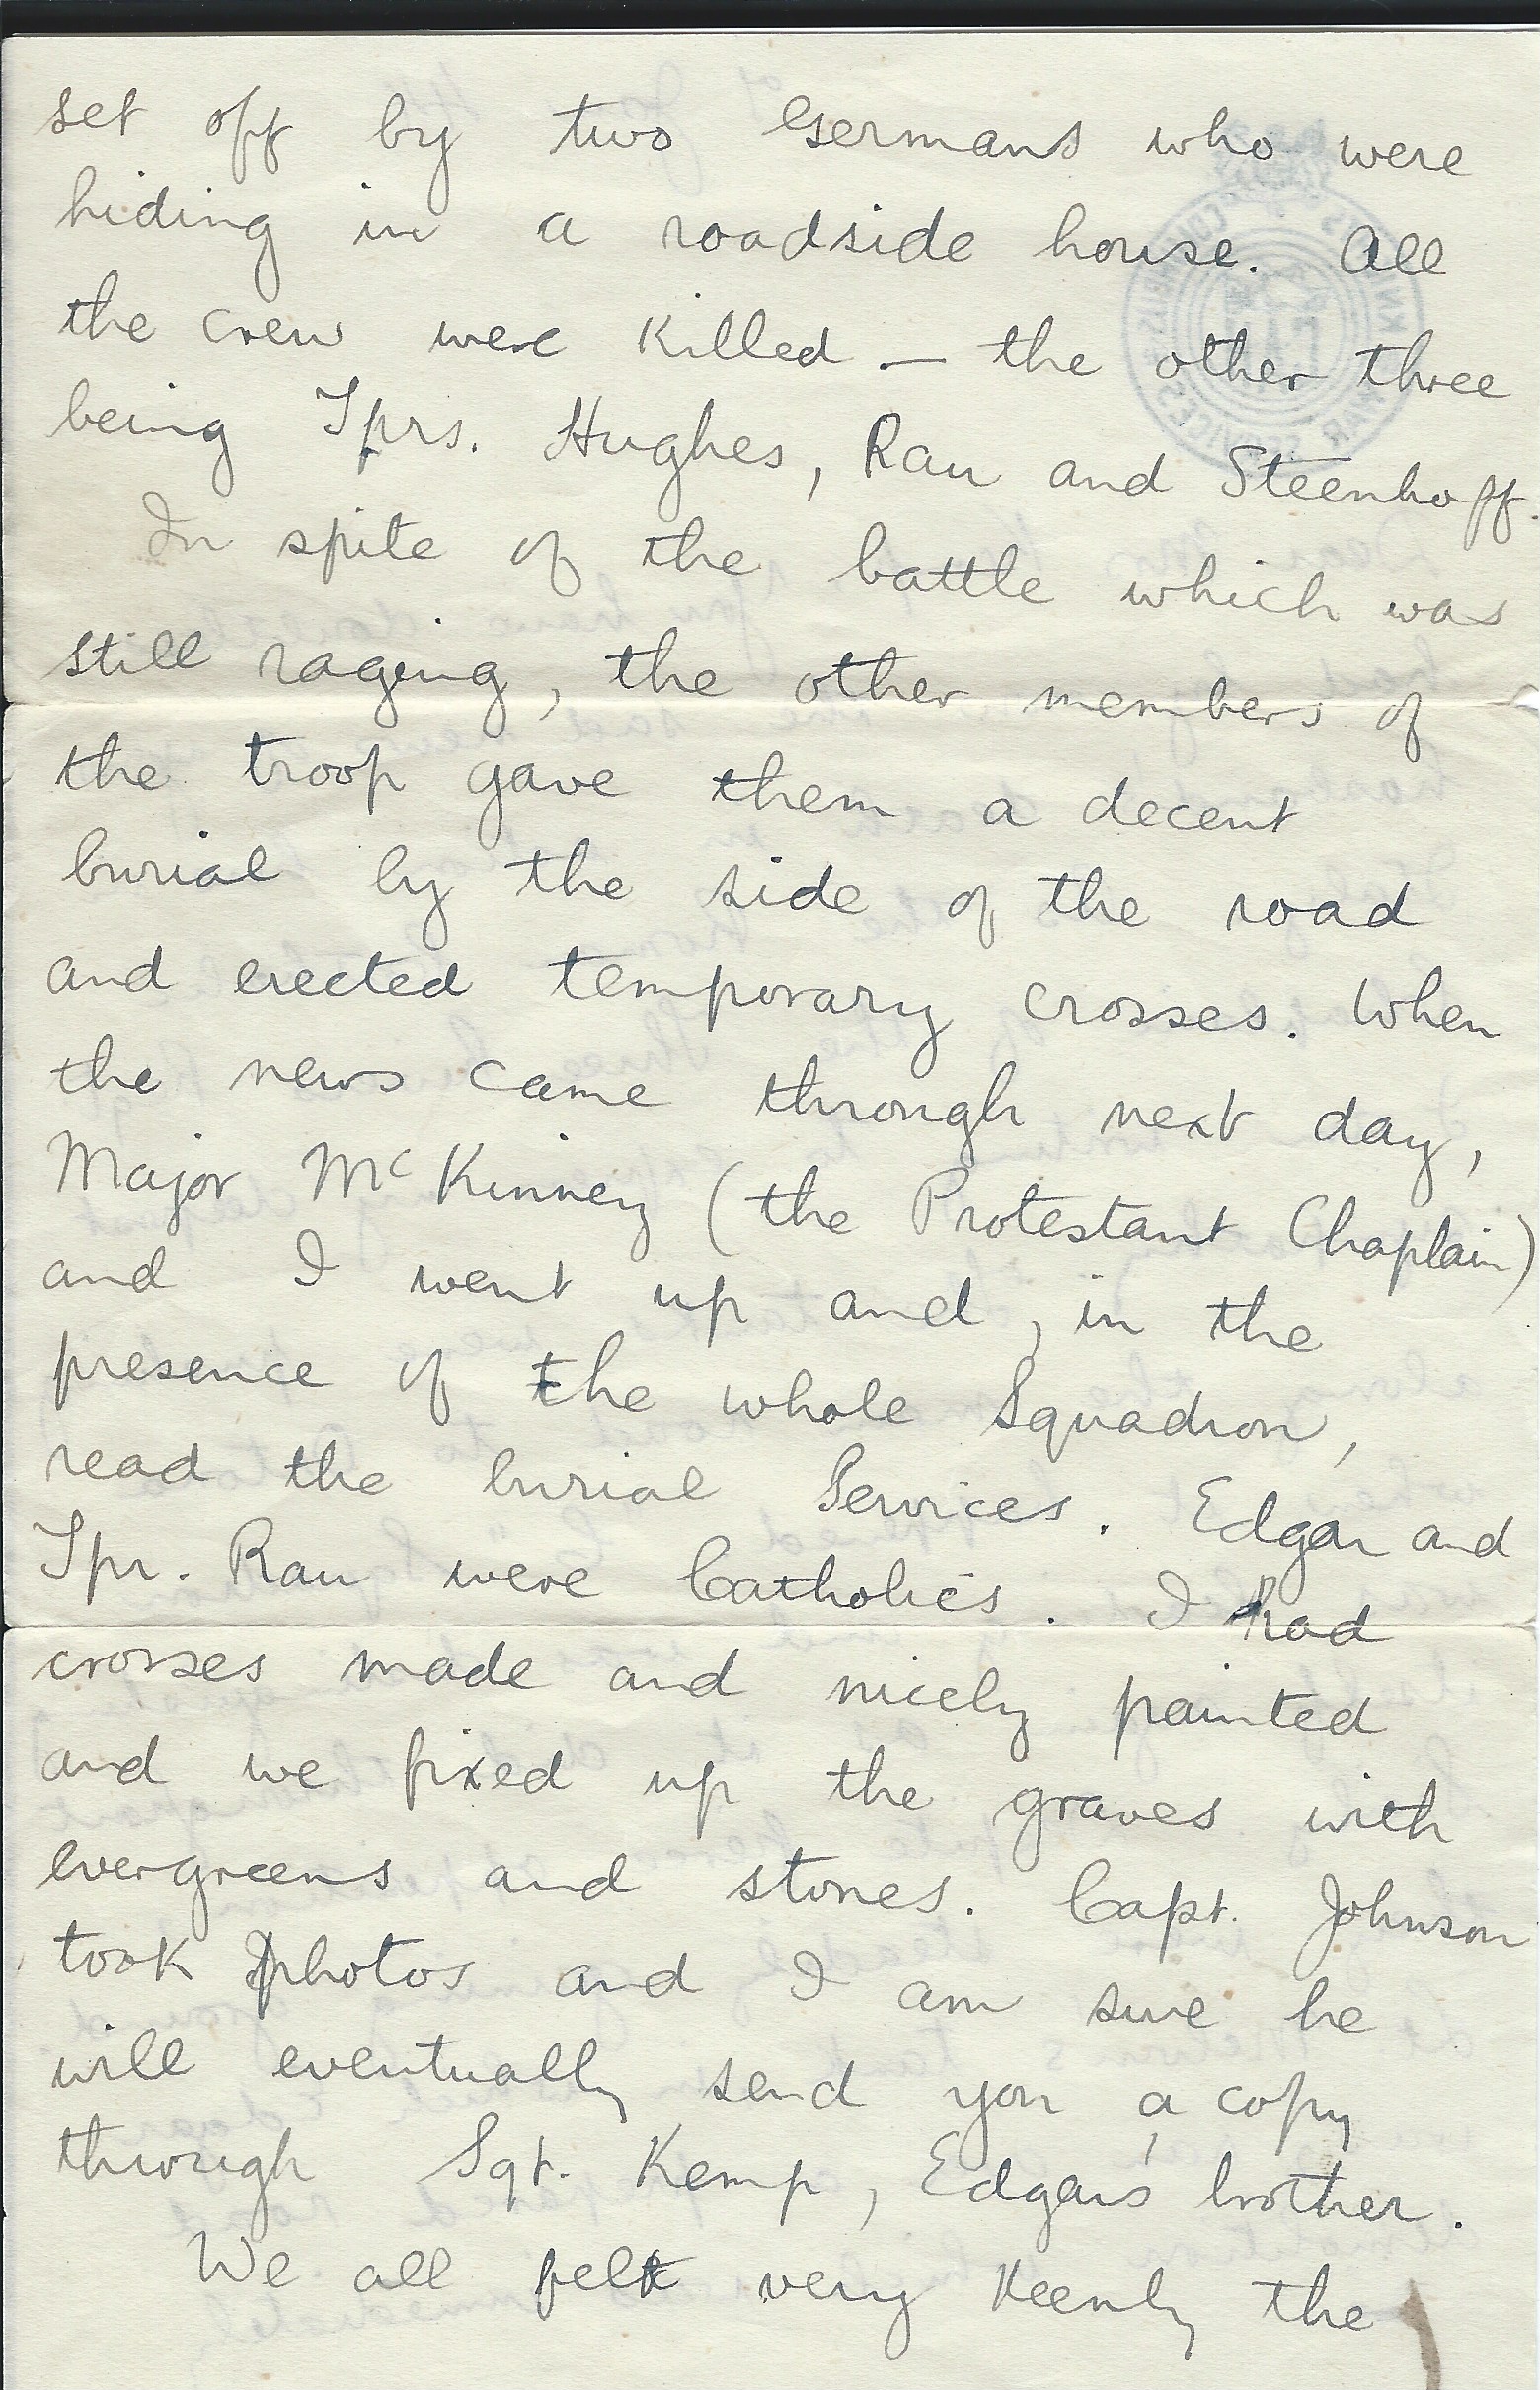 set off by two Germans who were
hiding in a roadside house. All
the crew were killed – the other three
being Tprs. Hughes, Rau and Steenhoff.
In spite of the battle which was
still raging, the other members of
the troop gave them a decent
burial by the side of the road
and erected temporary crosses. When
the news came through next day,
Major McKinney (the Protestant Chaplain)
and I went up and, in the
presence of the whole Squadron,
read the burial Services. Edgar and
Tpr. Rau were Catholics. I had
crosses made and nicely painted
and we fixed up the graves with
evergreens and stones. Capt. Johnson
took photos and I am sure he
will eventually send you a copy
through Sgt. Kemp, Edgar's brother.
We all felt very keenly the